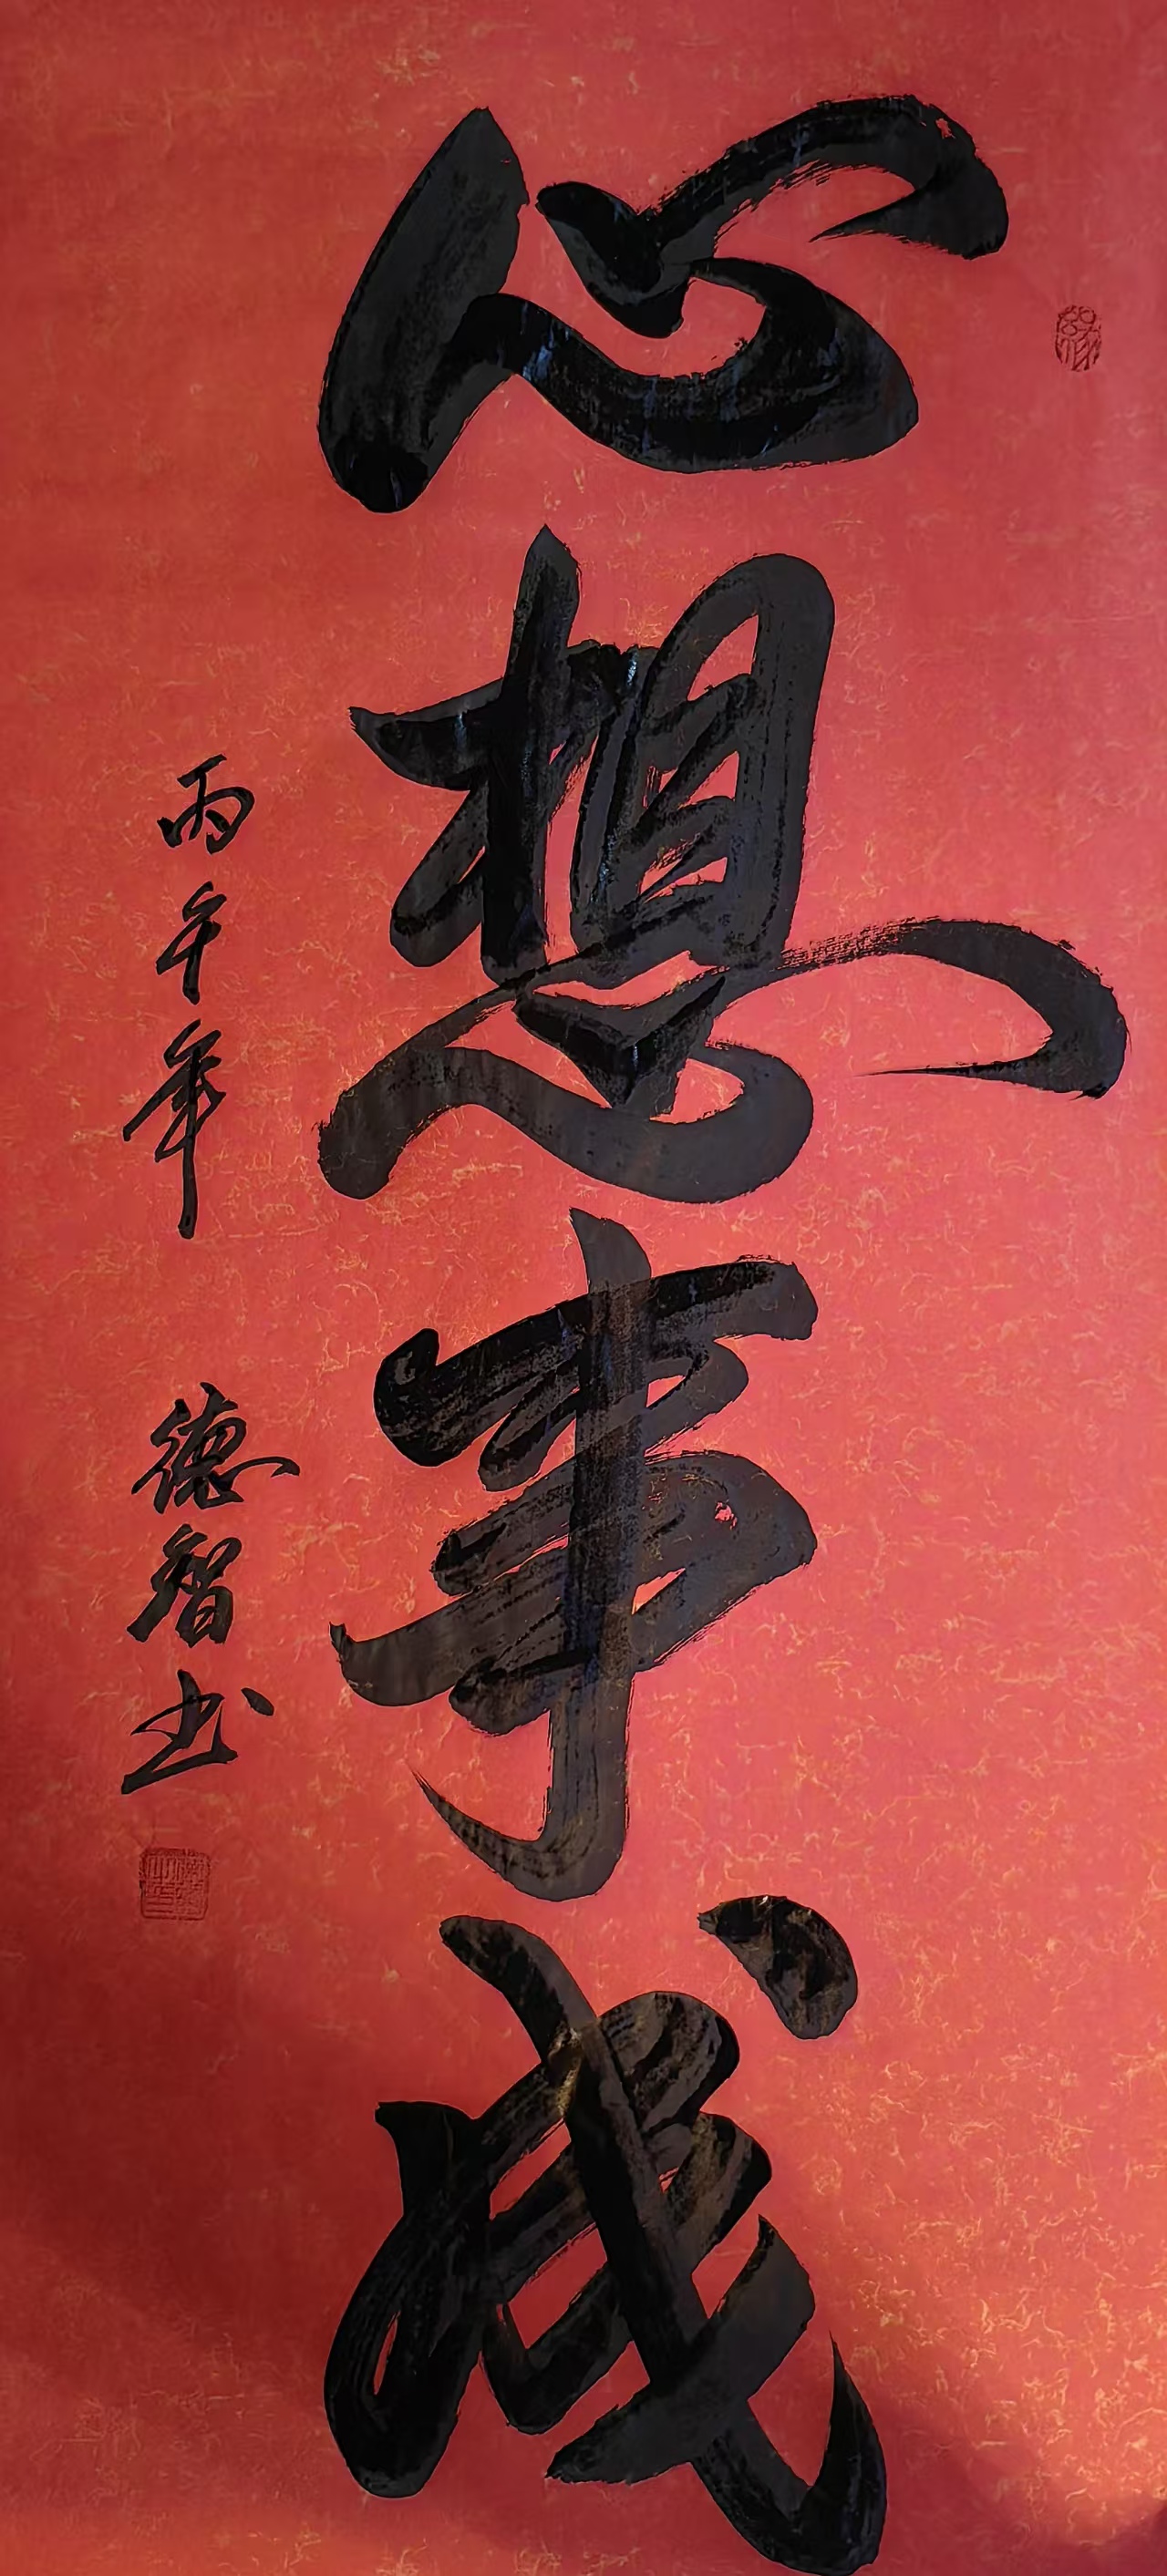 心想事成
丙午年 德智书